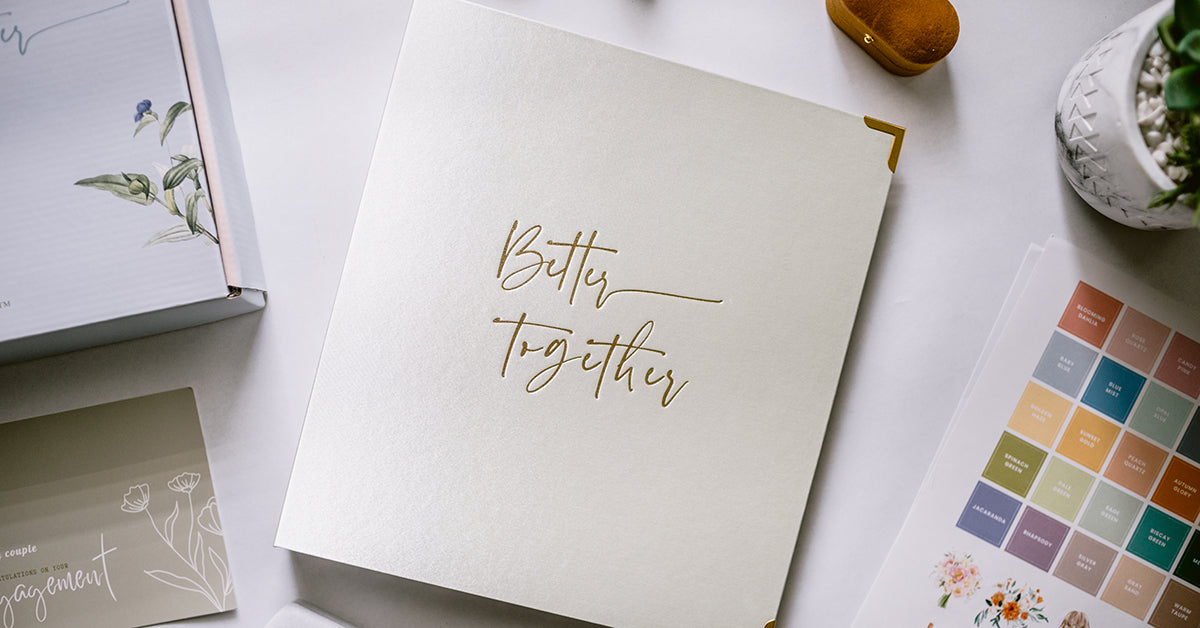 Better
together
couple
ON YOUR
BLOOMING
DAHLIA
ROSE
QUARTZ
CANDY
PINK
BABY
BLUE
BLUE
MIST
OPAL
BLUE
GOLDEN
HAZE
SUNSET
GOLD
PEACH
QUARTZ
AUTUMN
GLORY
SPINACH
GREEN
PALE
GREEN
JADE
GREEN
BISCAY
GREEN
JACARANDA
RHAPSODY
SILVER
GRAY
GRAY
SAND
WARM
TAUPE